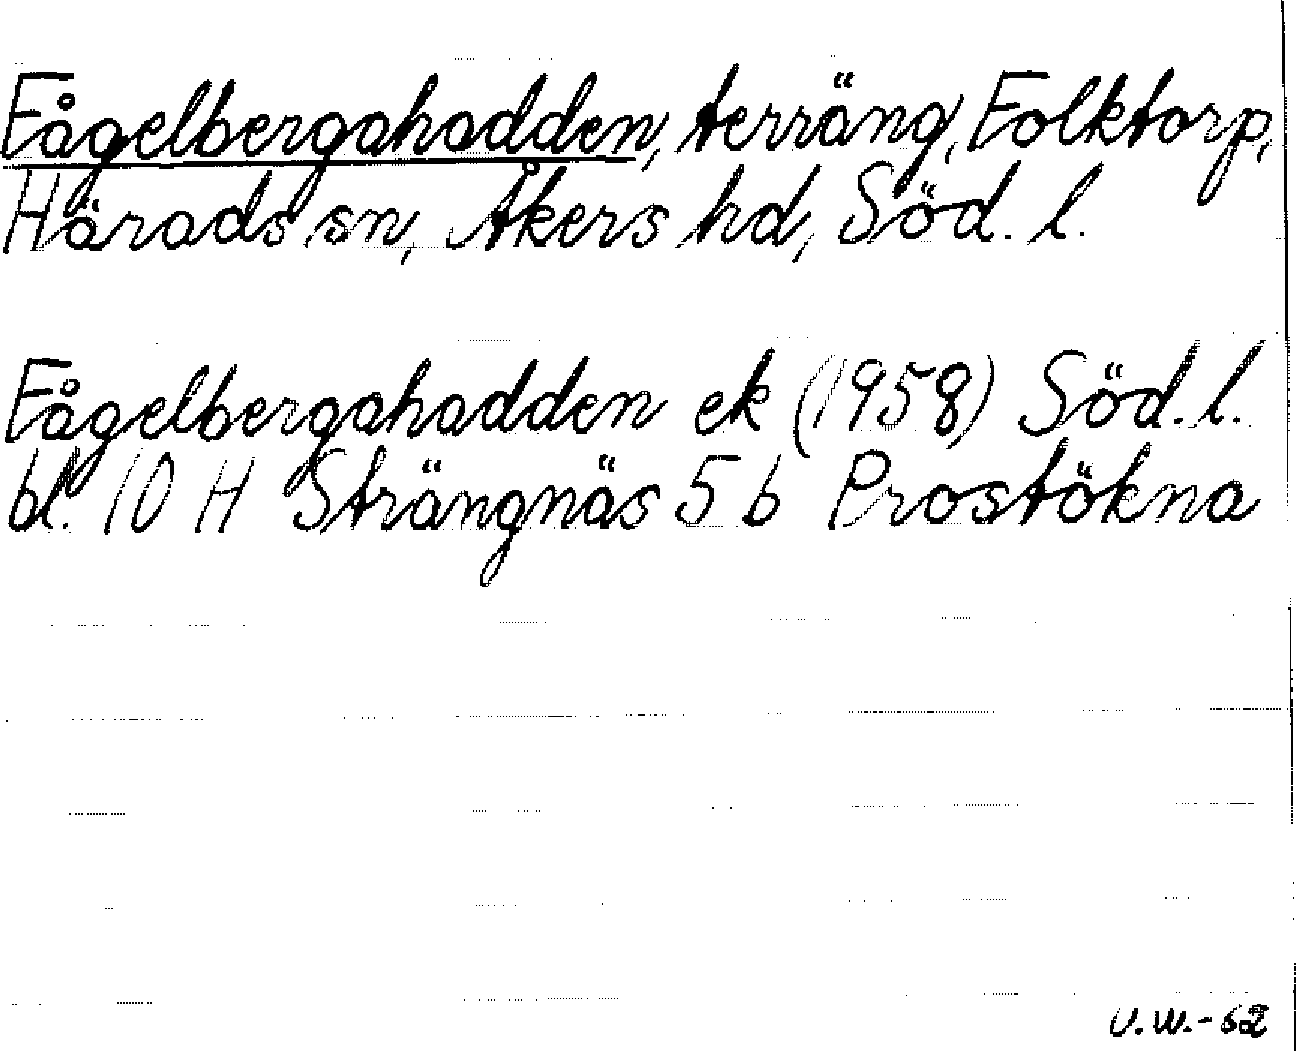 Fågelbergahadden, terräng, Folktorp,
Härads sn, Åkers hd, Söd. l.
Fågelbergahadden ek (1958) Söd. l.
bl. 10 H Strängnäs 5 b Prostökna
U.W.-62